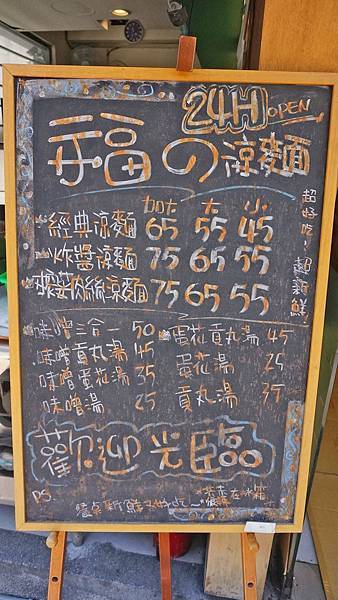 24H OPEN
福の涼麵
超好吃！超新鮮
加大 大 小
經典涼麵 65 55 45
炸醬涼麵 75 65 55
榨菜肉絲涼麵 75 65 55
味噌三合一 50
味噌貢丸湯 45
味噌蛋花湯 35
味噌湯 25
蛋花貢丸湯 45
蛋花湯 25
貢丸湯 35
歡迎光臨
PS.
餐點新鮮
在冰箱